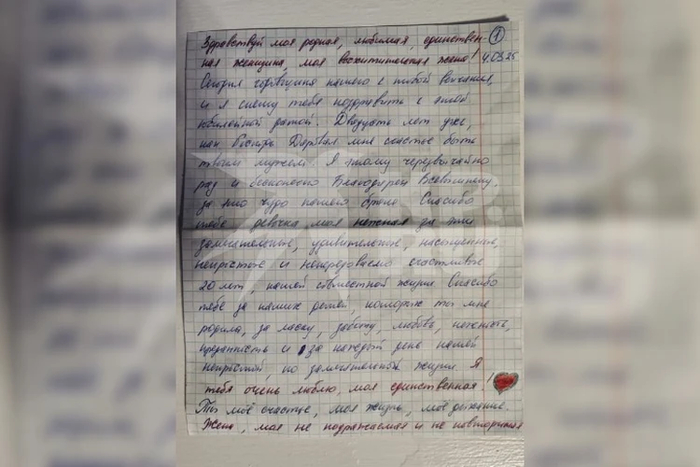 Здравствуй моя родная, любимая, единствен- ①
ная женщина, моя восхитительная жена! 4.03.25
Сегодня годовщина нашего с тобой венчания,
и я спешу тебя поздравить с этой
юбилейной датой. Двадцать лет уже,
как Господь Даровал мне счастье быть
твоим мужем. Я этому чрезвычайно
рад и бесконечно Благодарен Всевышнему,
за это чудо нашего брака. Спасибо
тебе девочка моя нежная за эти
замечательные, удивительные, насыщенные,
непростые и непередаваемо счастливые
20 лет, нашей совместной жизни. Спасибо
тебе за наших детей, которых ты мне
родила, за ласку, заботу, любовь, нежность,
преданность и за каждый день нашей
непростой, но замечательной жизни. Я
тебя очень люблю, моя единственная!
Ты моё счастье, моя жизнь, моё дыхание.
Жена, моя не подражаемая и не повторимая